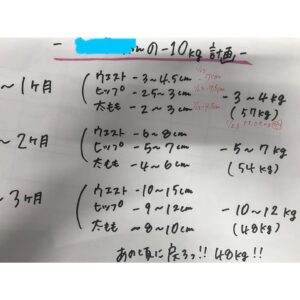 mの-10kg計画-
~1ヶ月
ウエスト -3~4.5cm
ヒップ -2.5~3cm
太もも -2~3cm
-3~4kg
(57kg)
~2ヶ月
ウエスト -6~8cm
ヒップ -5~7cm
太もも -4~6cm
-5~7kg
(54kg)
~3ヶ月
ウエスト -10~15cm
ヒップ -9~12cm
太もも ~8~10cm
-10~12kg
(48kg)
あの頃に戻ろっ!! 48kg!!